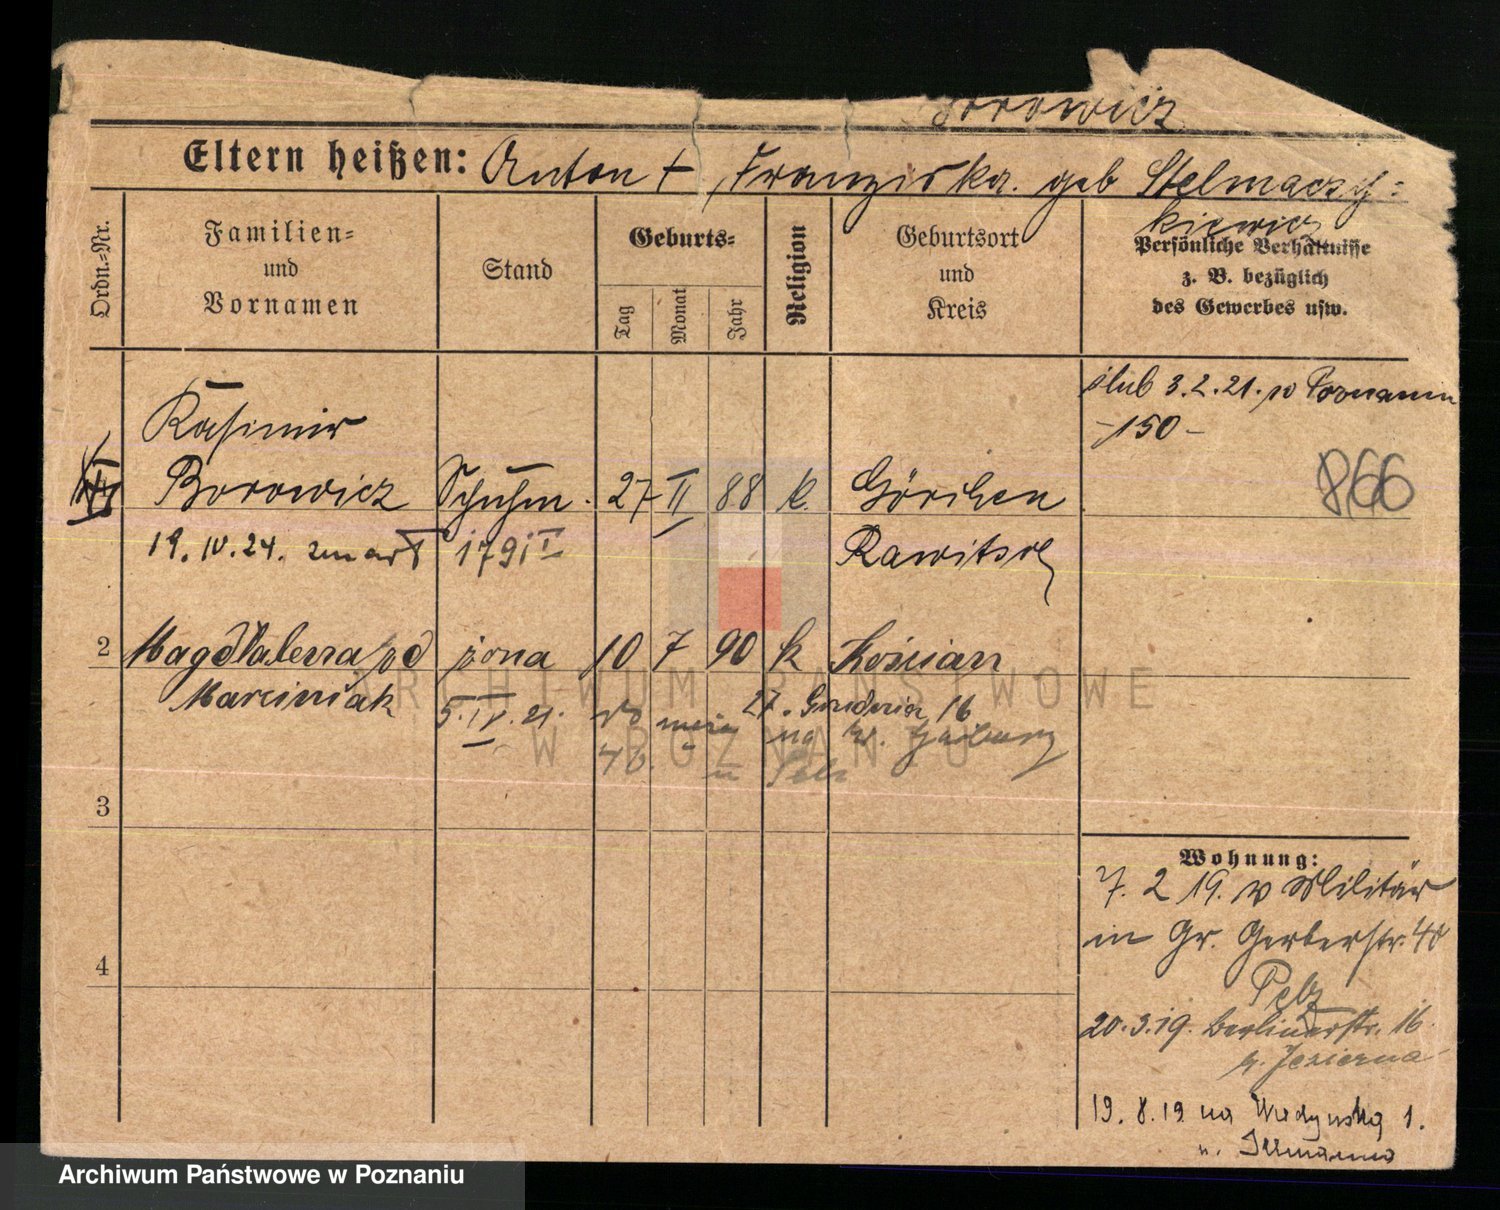 Borowicz
Eltern heißen: Anton + Franziska. geb Stelmaczy=
kiewicz
Ordn.-Nr.
Familien=
und
Vornamen
Stand
Geburts=
Tag
Monat
Jahr
Religion
Geburtsort
und
Kreis
Persönliche Verhältnisse
z. B. bezüglich
des Gewerbes usw.
ślub 3.2.21. w Poznaniu
-150-
866
Kasimir
Borowicz Schuhm. 27 II 88 k. Görchen
19. IV. 24. zmarł 1791 I Rawitsch
2 Magdalena pd żona 10 7 90 k Kościan
Marciniak 5. IV. 21. 27. Grudnia 16
ARCHIWUM PAŃSTWOWE
W POZNANIU
3
4
Wohnung:
7. 2 19. v Militär
in Gr. Gerberstr. 40
Pelz
20.3.19. Berlinerstr. 16.
b. Jezierna
19. 8. 19 na 1.
Archiwum Państwowe w Poznaniu